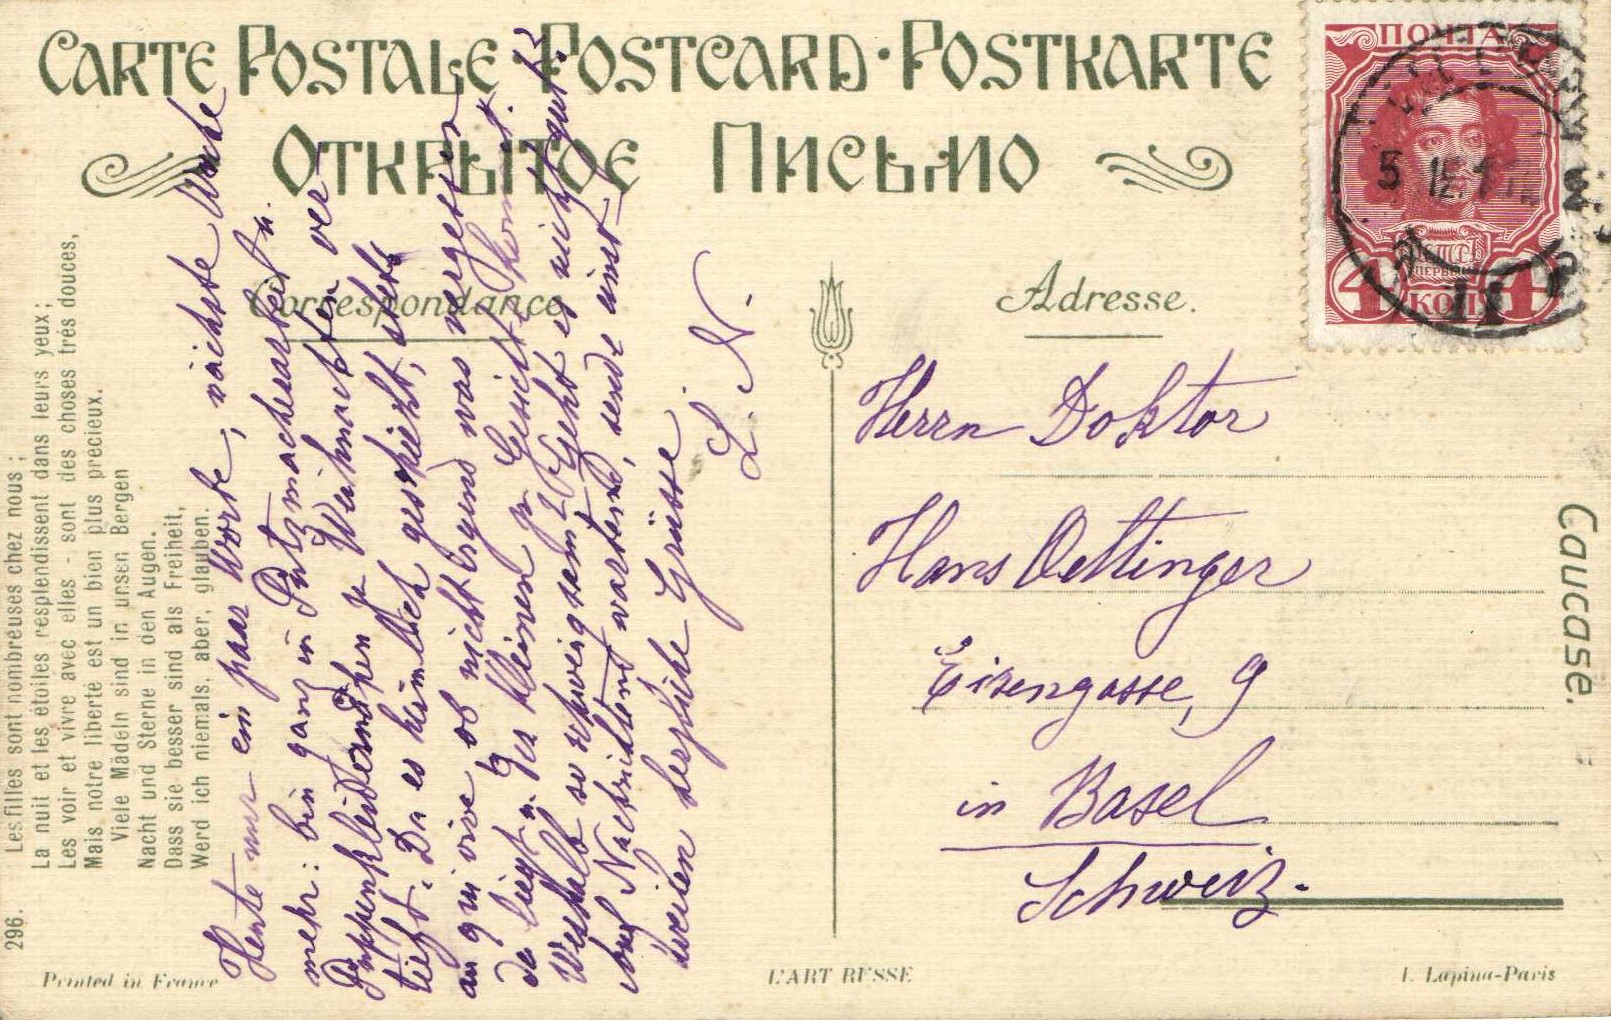 CARTE POSTALE · POSTCARD · POSTKARTE
ОТКРЫТОЕ ПИСЬМО
Correspondance
Adresse.
ПОЧТА
4 КОП 4
296.
Les filles sont nombreuses chez nous ;
La nuit et les étoiles resplendissent dans leurs yeux ;
Les voir et vivre avec elles - sont des choses trés douces,
Mais notre liberté est un bien plus precieux.
Viele Mädeln sind in unsen Bergen
Nacht und Sterne in den Augen.
Dass sie besser sind als Freiheit,
Werd ich niemals, aber, glauben.
Heute nur ein paar Worte, nächste Woche
mehr: bin ganz in Putzmacherarbeit u.
Puppenkleiderndhen zu Weihnachten ver
tieft. Da es heimlich geschieht, stets
au qui vive ob nicht irgend was vergessen
da liegt u. den kleinen zu Gesicht kommt.
Weshalb so schweigsam? Geht es nicht gut?
Auf Nachrichten wartend, sende einst-
weilen herzliche Grüsse
L. N.
Herrn Doktor
Hans Oettinger
Eisengasse, 9
in Basel
Schweiz.
Caucase.
Printed in France
L'ART RUSSE
I. Lapina-Paris